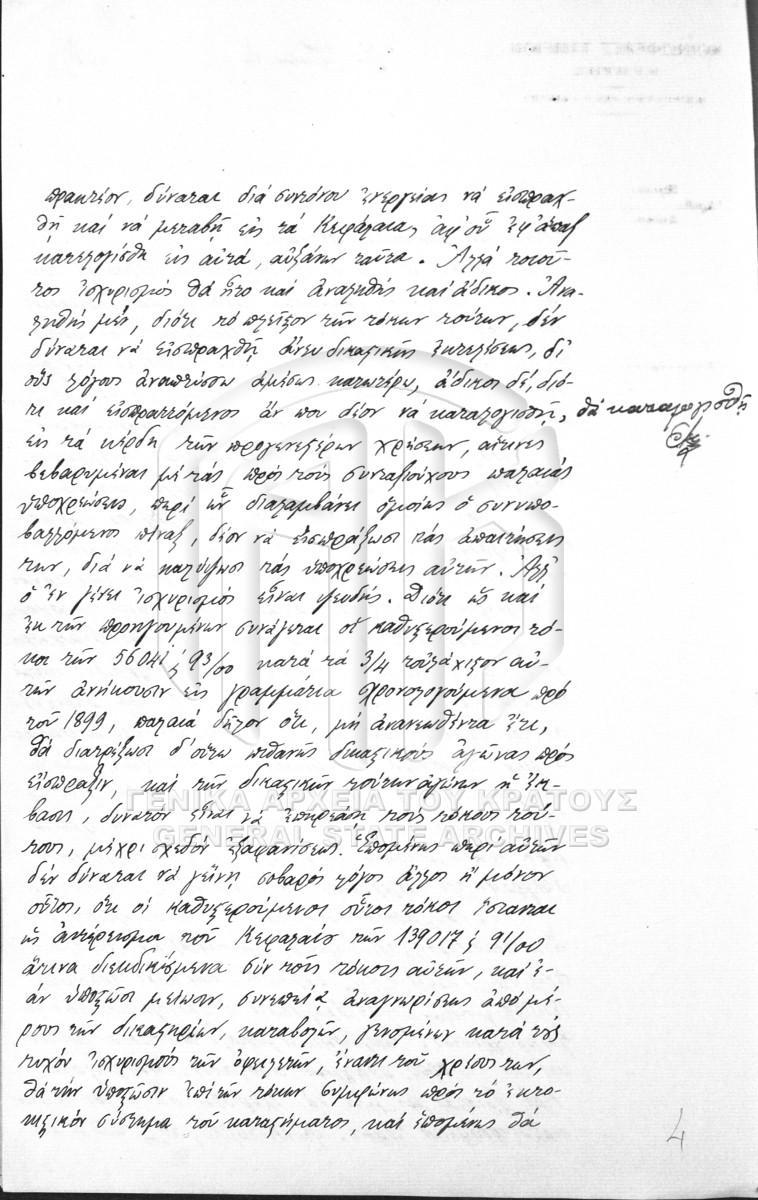 πρακτέον, δύναται διά συντόνου ἐνεργείας νά εἰσπραχ-
θῇ καί νά μεταβῇ εἰς τά Κεφάλαια, ἀφ' οὗ ἐφ' ἅπαξ
κατελογίσθη εἰς αὐτά, αὐξάνων ταῦτα. Ἀλλά τοιοῦ-
τος ἰσχυρισμός θά ἦτο καί ἀναληθής καί ἄδικος. Ἀνα-
ληθής μέν, διότι τό πλεῖστον τῶν τόκων τούτων, δέν
δύναται νά εἰσπραχθῇ ἄνευ δικαστικῆς ἐκτελέσεως, δι'
οὕς λόγους ἀναπτύσσω ἀμέσως κατωτέρω, ἄδικος δέ, διό-
τι καί εἰσπραττόμενος ἄν που δέον νά καταλογισθῇ, θά καταλογισθῇ
εἰς τά κέρδη τῶν προγενεστέρων χρήσεων, αἵτινες
βεβαρυμέναι μέ τάς πρός τούς συνταξιούχους παλαιάς
ὑποχρεώσεις, περί ὧν διαλαμβάνει ὁμοίως ὁ συνυπο-
βαλλόμενος πίναξ, δέον νά εἰσπράξωσι τάς ἀπαιτήσεις
των, διά νά καλύψωσι τάς ὑποχρεώσεις αὐτῶν. Ἀλλ'
ὁ ἐν λόγῳ ἰσχυρισμός εἶναι ψευδής. Διότι ὡς καί
ἐκ τῶν προηγουμένων συνάγεται οἱ καθυστερούμενοι τό-
κοι τῶν 56041 ξ 93/00 κατά τά 3/4 τοὐλάχιστον αὐ-
τῶν ἀνήκουσιν εἰς γραμμάτια χρονολογούμενα πρό
τοῦ 1899, παλαιά δῆλον ὅτι, μή ἀνανεωθέντα ἔτι,
θά διατρέξωσι δ' οὕτω πιθανῶς δικαστικούς ἀγῶνας πρός
εἴσπραξιν, καί τῶν δικαστικῶν τούτων ἀγώνων ἡ ἔκ-
βασις, δυνατόν εἶναι νά ἐπηρεάσῃ τούς τόκους τού-
τους, μέχρι σχεδόν ἐξαφανίσεως. Ἑπομένως περί αὐτῶν
δέν δύναται νά γείνῃ σοβαρός λόγος ἄλλος ἤ μόνον
οὗτος, ὅτι οἱ καθυστερούμενοι οὗτοι τόκοι ἵστανται
ὡς ἀντέρεισμα τοῦ Κεφαλαίου τῶν 139017 ξ 91/00
ἅτινα διεκδικούμενα σύν τοῖς τόκοις αὐτῶν, καί ἐ-
άν ὑποστῶσι μείωσιν, συνεπείᾳ ἀναγνωρίσεως ἀπό μέ-
ρους τῶν δικαστηρίων, καταβολῶν, γενομένων κατά τούς
τυχόν ἰσχυρισμούς τῶν ὀφειλετῶν, ἔναντι τοῦ χρέους των,
θά τήν ὑποστῶσιν ἐπί τῶν τόκων συμφώνως πρός τό ἐκτο-
κιστικόν σύστημα τοῦ καταστήματος, καί ἑπομένως θά
4
ΓΕΝΙΚΑ ΑΡΧΕΙΑ ΤΟΥ ΚΡΑΤΟΥΣ
GENERAL STATE ARCHIVES